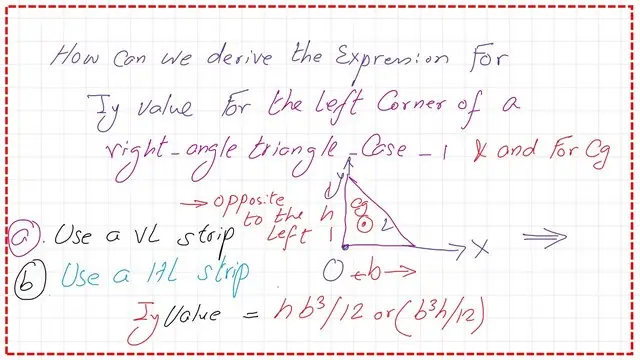 How Can we derive the Expression For
Iy value For the left Corner of a
right-angle triangle-Case-1 & and For Cg
y
→ opposite
to the h
left 1
Cg
2
a Use a VL strip
X
b Use a HL strip
O ← b →
Iy Value = hb³/12 or (b³h/12)